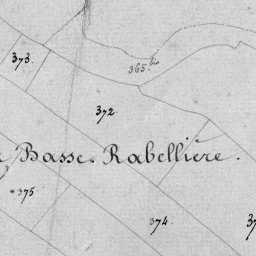 373
365 bis
372
Basse. Rabellière.
375
374